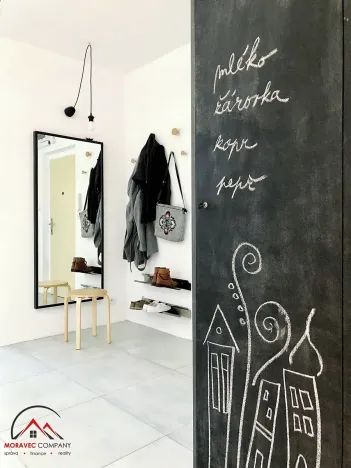 mléko
žárovka
kopr
pepř
MORAVEC COMPANY
správa • finance • reality